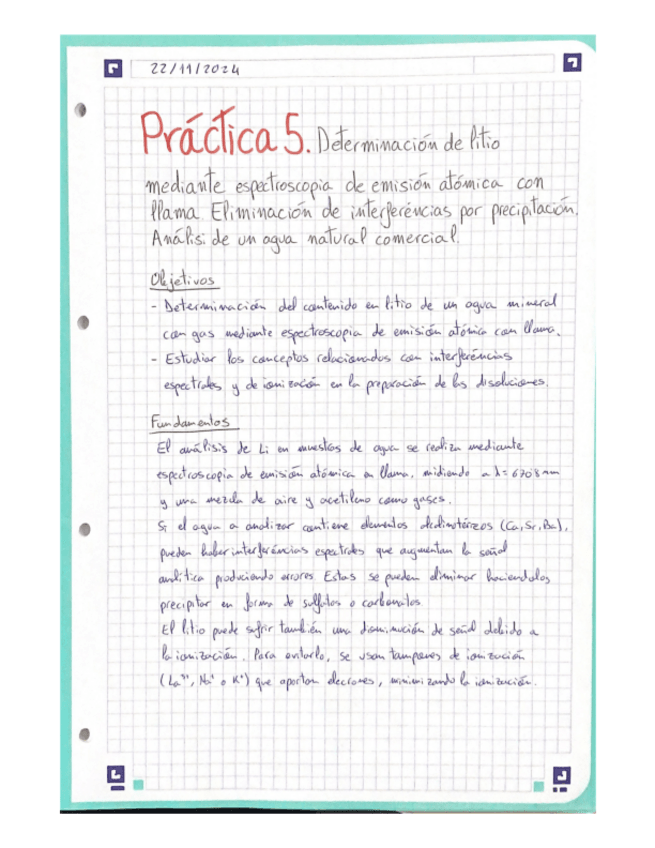 22/11/2024
Práctica 5. Determinación de litio
mediante espectroscopia de emisión atómica con
llama. Eliminación de interferéncias por precipitación.
Análisi de un agua natural comercial.
Objetivos
- Determinación del contenido en litio de un agua mineral
con gas mediante espectroscopia de emisión atómica con llama.
- Estudiar los conceptos relacionados con interferéncias
espectrales y de ionización en la preparación de las disoluciones.
Fundamentos
El análisis de Li en muestras de agua se realiza mediante
espectroscopia de emisión atómica en llama, midiendo a λ= 670'8 nm
y una mezcla de aire y acetileno como gases.
Si el agua a analizar contiene elementos alcalinotérreos (Ca, Sr, Ba),
pueden haber interferéncias espectrales que augmentan la señal
analítica produciendo errores. Estas se pueden eliminar haciendolos
precipitar en forma de sulfatos o carbonatos.
El litio puede sufrir también una disminución de señal debido a
la ionización. Para evitarlo, se usan tampones de ionización
(La³⁺, Na⁺ o K⁺) que aportan electrones, minimizando la ionización.